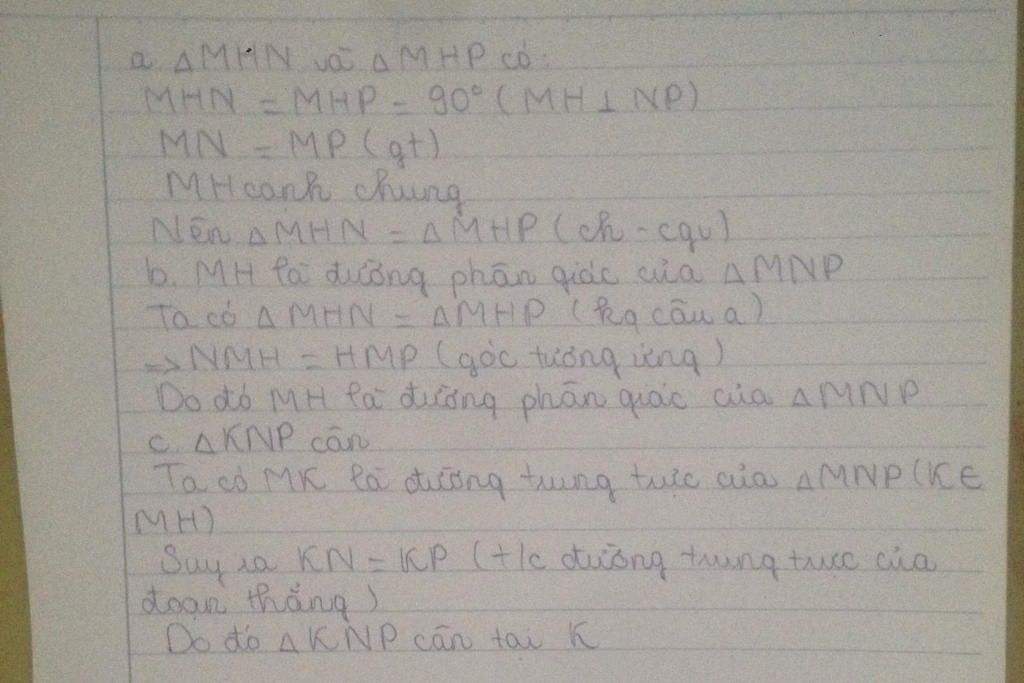 a. △MHN và △MHP có:
MHN = MHP = 90° (MH⊥NP)
MN = MP (gt)
MH cạnh chung
Nên △MHN = △MHP (ch - cgv)
b. MH là đường phân giác của △MNP
Ta có △MHN = △MHP (kq câu a)
=> NMH = HMP (góc tương ứng)
Do đó MH là đường phân giác của △MNP
c. △KNP cân
Ta có MK là đường trung trực của △MNP (K∈
MH)
Suy ra KN = KP (t/c đường trung trực của
đoạn thẳng)
Do đó △KNP cân tại K